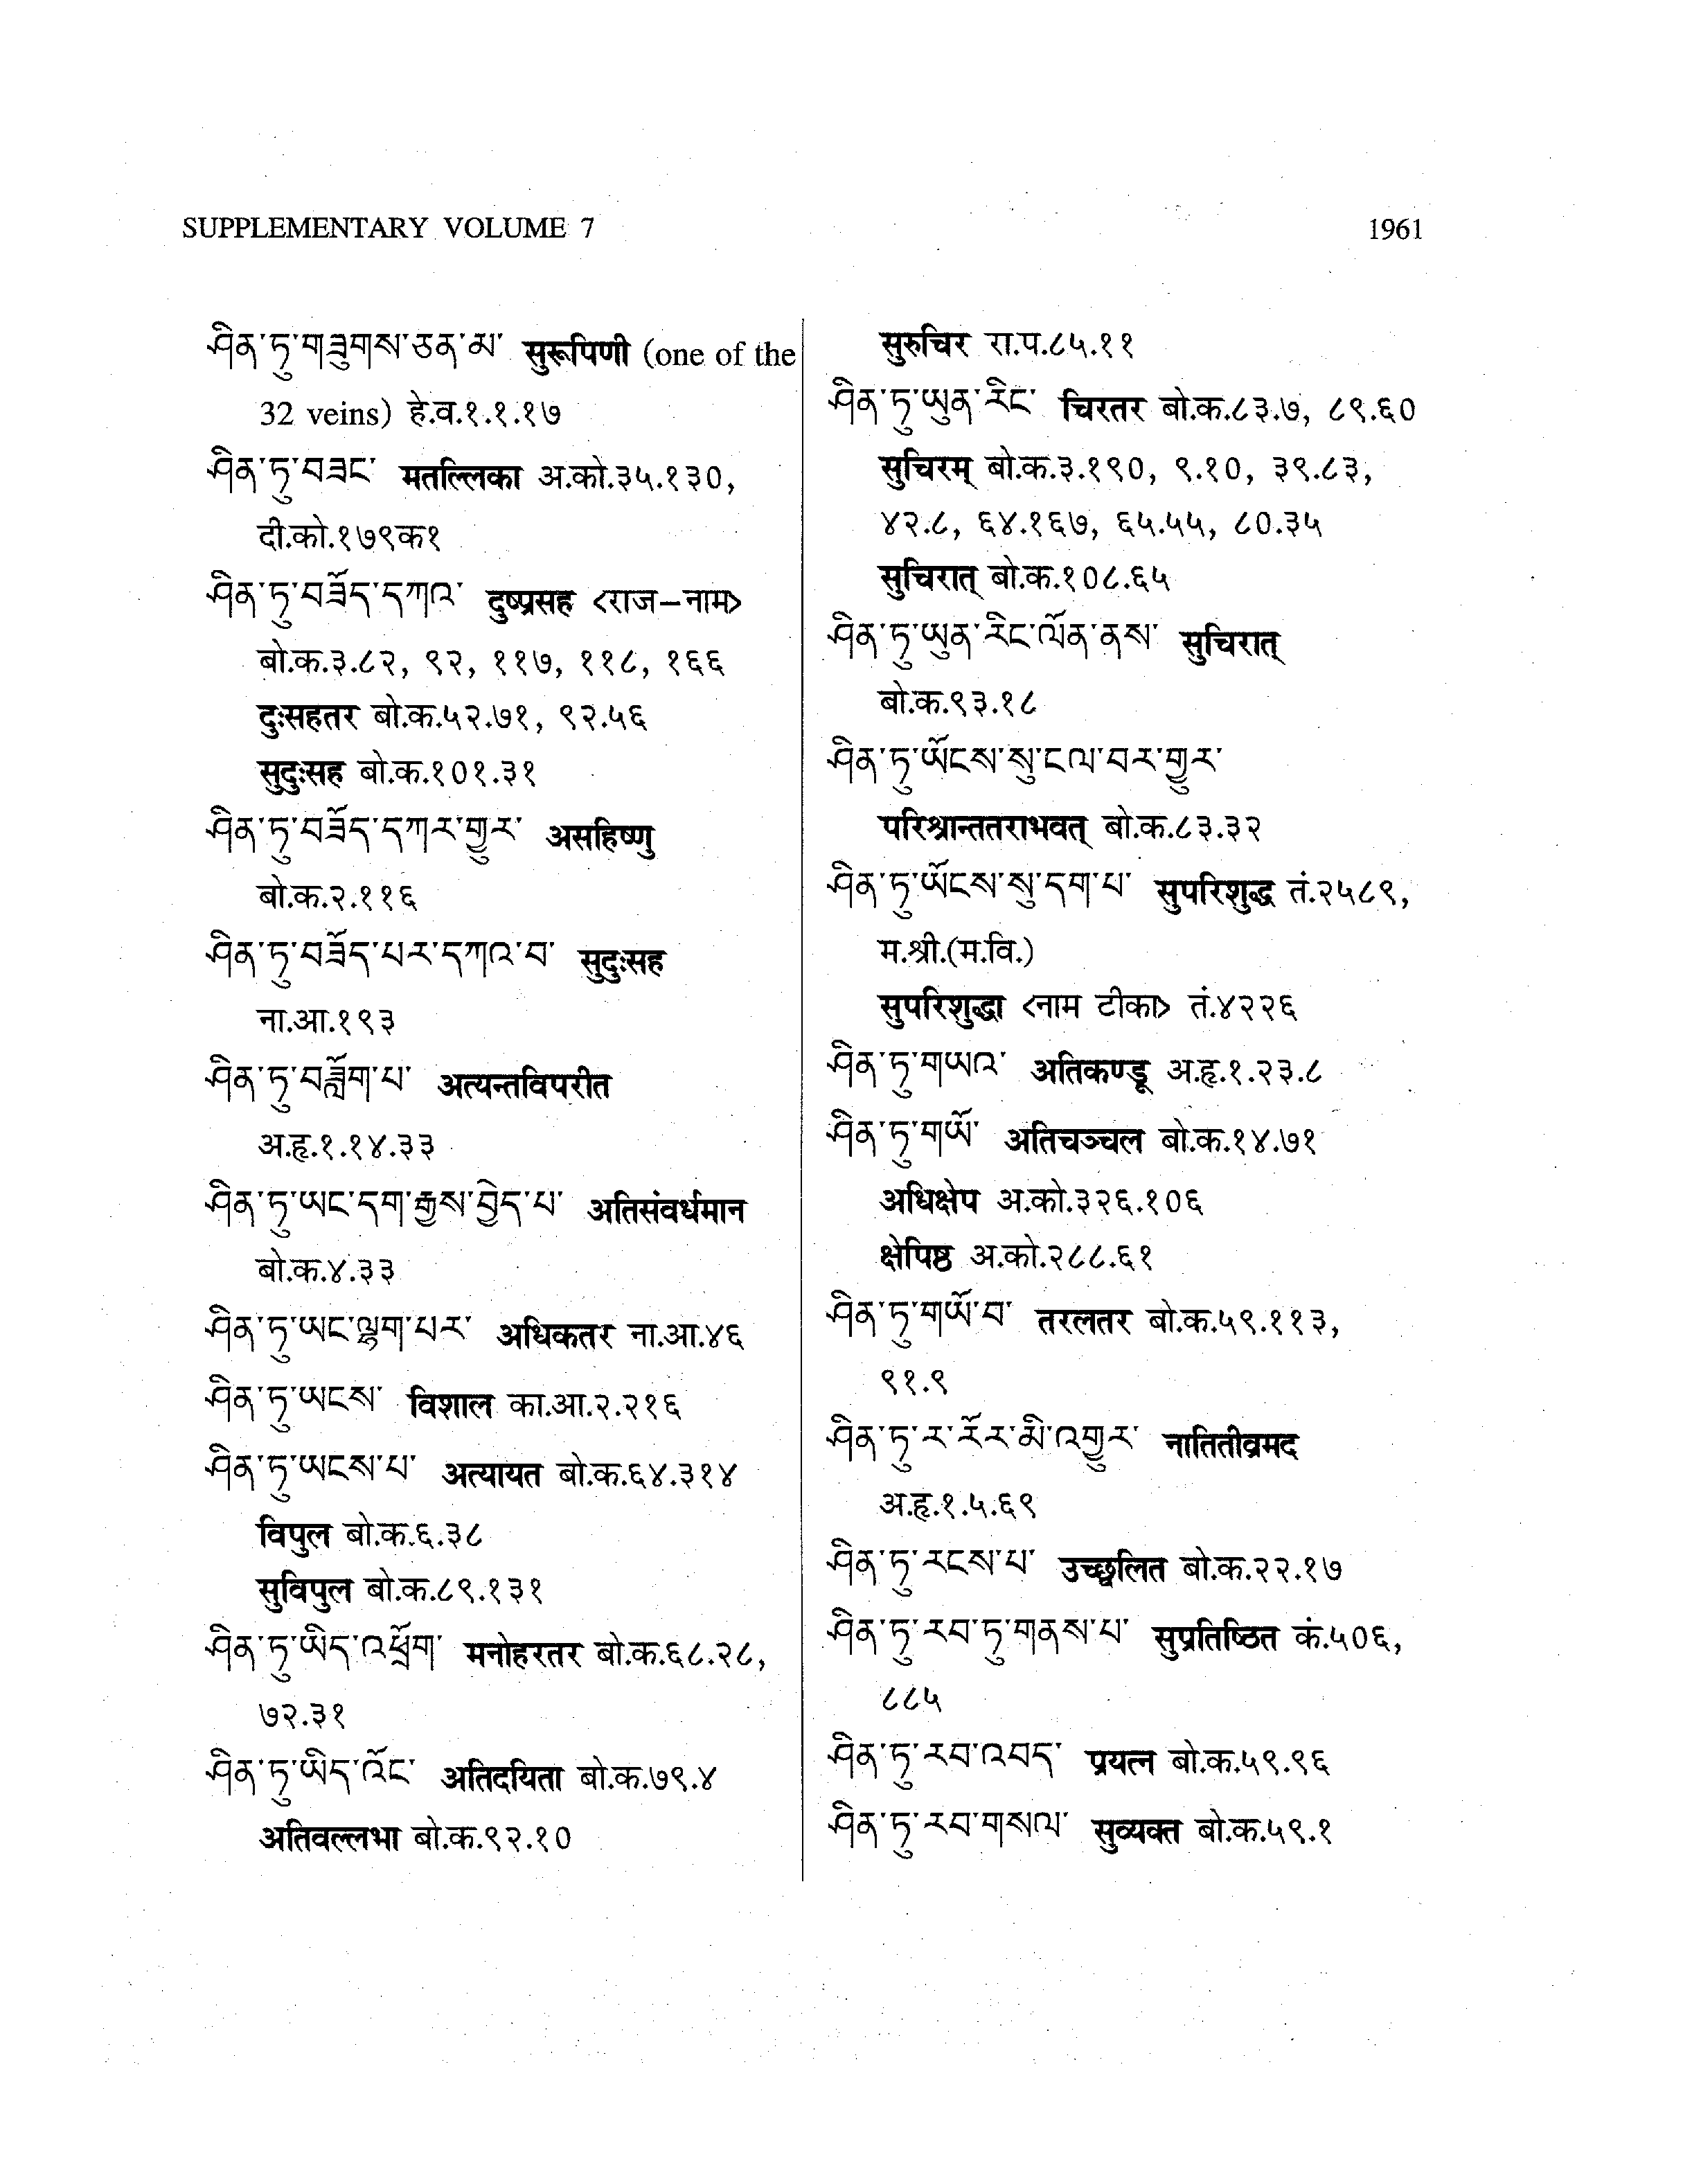 SUPPLEMENTARY VOLUME 7 1961
ཤིན་ཏུ་གཟུགས་ཅན་མ་ सुरूपिणी (one of the
32 veins) हे.व.१.१.१७
ཤིན་ཏུ་བཟང་ मतल्लिका अ.को.३५.१३०,
दी.को.१७९क१
ཤིན་ཏུ་བཟོད་དཀའ་ दुष्प्रसह <राज–नाम>
बो.क.३.८२, ९२, ११७, ११८, १६६
दुःसहतर बो.क.५२.७१, ९२.५६
सुदुःसह बो.क.१०१.३१
ཤིན་ཏུ་བཟོད་དཀར་གྱུར་ असहिष्णु
बो.क.२.११६
ཤིན་ཏུ་བཟོད་པར་དཀའ་བ་ सुदुःसह
ना.आ.१९३
ཤིན་ཏུ་བཟློག་པ་ अत्यन्तविपरीत
अ.हृ.१.१४.३३
ཤིན་ཏུ་ཡང་དག་རྒྱས་བྱེད་པ་ अतिसंवर्धमान
बो.क.४.३३
ཤིན་ཏུ་ཡང་ལྷག་པར་ अधिकतर ना.आ.४६
ཤིན་ཏུ་ཡངས་ विशाल का.आ.२.२१६
ཤིན་ཏུ་ཡངས་པ་ अत्यायत बो.क.६४.३१४
विपुल बो.क.६.३८
सुविपुल बो.क.८९.१३१
ཤིན་ཏུ་ཡིད་འཕྲོག་ मनोहरतर बो.क.६८.२८,
७२.३१
ཤིན་ཏུ་ཡིད་འོང་ अतिदयिता बो.क.७९.४
अतिवल्लभा बो.क.९२.१०
सुरुचिर रा.प.८५.११
ཤིན་ཏུ་ཡུན་རིང་ चिरतर बो.क.८३.७, ८९.६०
सुचिरम् बो.क.३.१९०, ९.१०, ३९.८३,
४२.८, ६४.१६७, ६५.५५, ८०.३५
सुचिरात् बो.क.१०८.६५
ཤིན་ཏུ་ཡུན་རིང་ལོན་ནས་ सुचिरात्
बो.क.९३.१८
ཤིན་ཏུ་ཡོངས་སུ་ངལ་བར་གྱུར་
परिश्रान्ततराभवत् बो.क.८३.३२
ཤིན་ཏུ་ཡོངས་སུ་དག་པ་ सुपरिशुद्ध तं.२५८९,
म.श्री.(म.वि.)
सुपरिशुद्धा <नाम टीका> तं.४२२६
ཤིན་ཏུ་གཡའ་ अतिकण्डू अ.हृ.१.२३.८
ཤིན་ཏུ་གཡོ་ अतिचञ्चल बो.क.१४.७१
अधिक्षेप अ.को.३२६.१०६
क्षेपिष्ठ अ.को.२८८.६१
ཤིན་ཏུ་གཡོ་བ་ तरलतर बो.क.५९.११३,
९१.९
ཤིན་ཏུ་ར་རོར་མི་འགྱུར་ नातितीव्रमद
अ.हृ.१.५.६९
ཤིན་ཏུ་རངས་པ་ उच्छ्वलित बो.क.२२.१७
ཤིན་ཏུ་རབ་ཏུ་གནས་པ་ सुप्रतिष्ठित कं.५०६,
८८५
ཤིན་ཏུ་རབ་འབད་ प्रयत्न बो.क.५९.९६
ཤིན་ཏུ་རབ་གསལ་ सुव्यक्त बो.क.५९.१